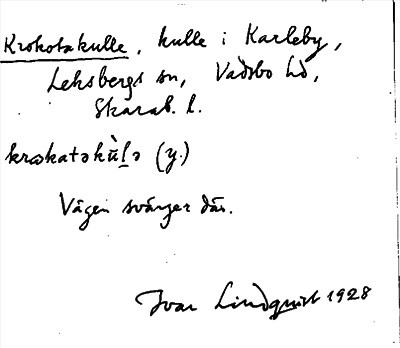 Krokotakulle, kulle i Karleby,
Leksbergs sn, Vadsbo hd,
Skarab. l.
krɷkatəkù̄l̠ə (y.)
Vägen svänger där.
Ivar Lindquist 1928